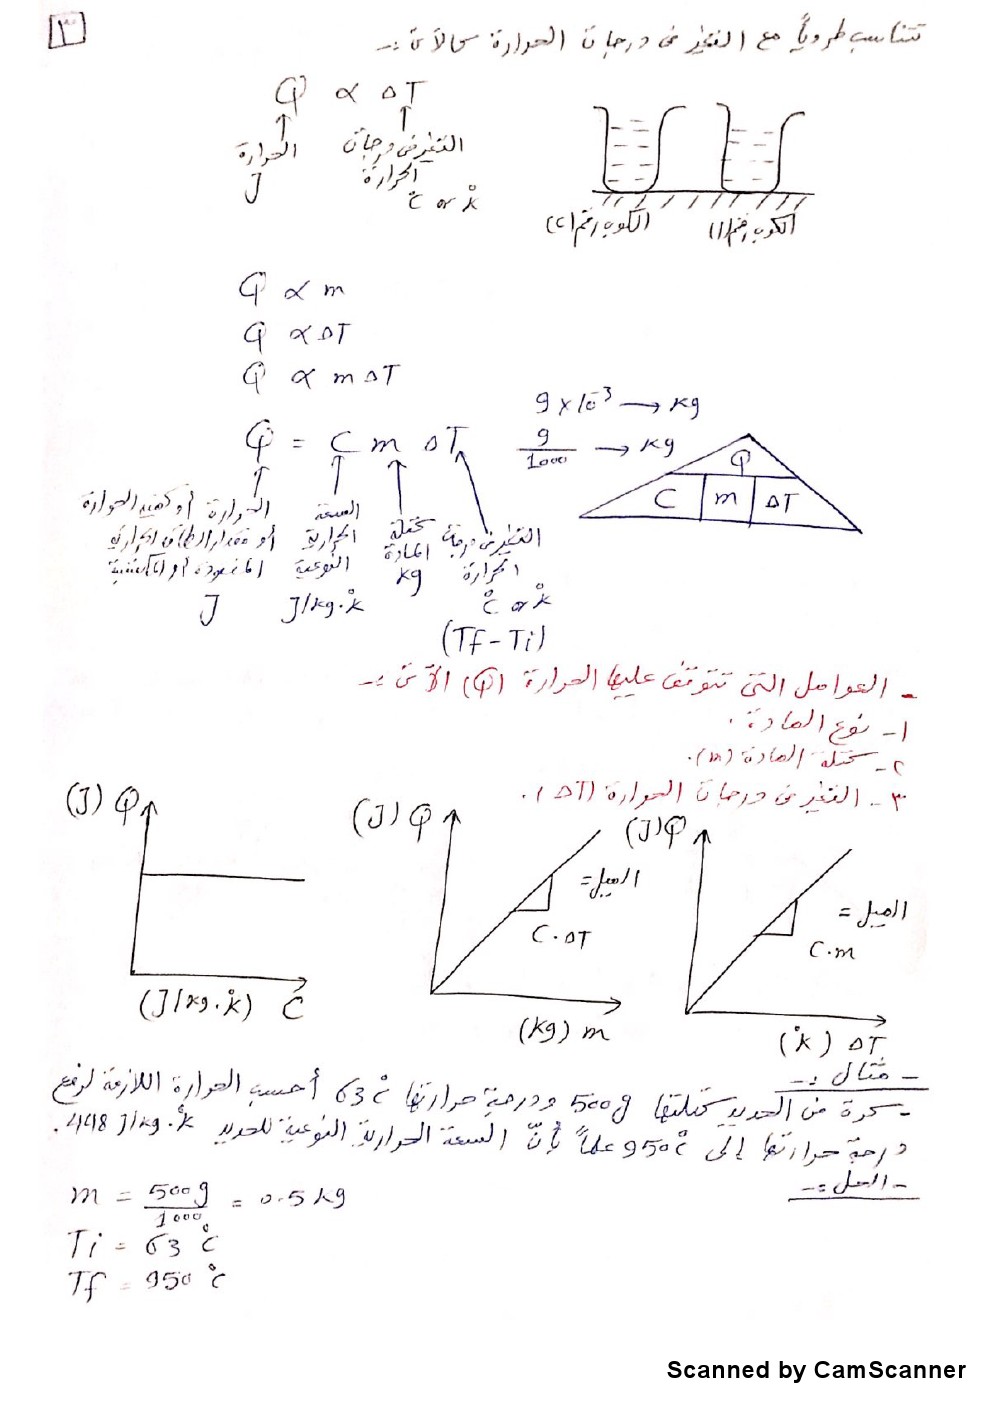 ٣
تتناسب طردياً مع التغير في درجات الحرارة كالآتي :-
Q ∝ ΔT
الحرارة
J
التغير في درجات
الحرارة
C° or K°
الكوب رقم (٢)
الكوب رقم (١)
Q ∝ m
Q ∝ ΔT
Q ∝ m ΔT
Q = C m ΔT
9 × 10⁻³ → kg
g/1000 → kg
Q
C m ΔT
الحرارة أو كمية الحرارة
أو مقدار الطاقة الحرارية
المفقودة أو المكتسبة
J
السعة
الحرارية
النوعية
J/kg.K°
كتلة
المادة
kg
التغير في درجات
الحرارة
C° or K°
(Tf - Ti)
- العوامل التي تتوقف عليها الحرارة (Q) الآتي :-
١- نوع المادة .
٢- كتلة المادة (m).
٣- التغير في درجات الحرارة (ΔT).
(J) Q
(J/kg.K°) C
(J) Q
الميل =
C.ΔT
(kg) m
(J) Q
الميل =
C.m
(K°) ΔT
- مثال :-
- كرة من الحديد كتلتها 500g ودرجة حرارتها 63C° أحسب الحرارة اللازمة لرفع
درجة حرارتها إلى 950C° علماً بأنّ السعة الحرارية النوعية للحديد 448 J/kg.K° .
- الحل :-
m = 500g/1000 = 0.5 kg
Ti = 63 C°
Tf = 950 C°
Scanned by CamScanner